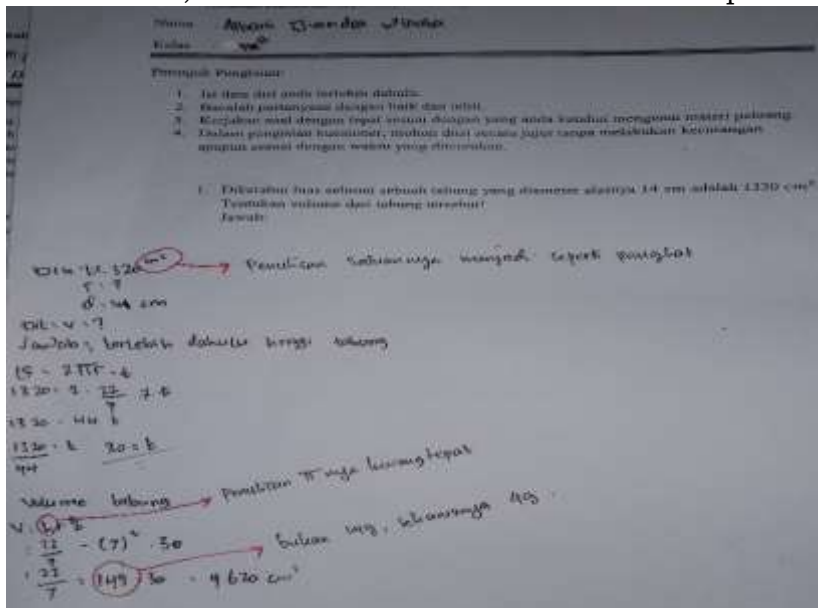 Nama
Kelas
Petunjuk Pengisian:
1. Isi data diri anda terlebih dahulu.
2. Bacalah pertanyaan dengan baik dan teliti.
3. Kerjakan soal dengan tepat sesuai dengan yang anda ketahui mengenai materi
4. Dalam pengisian kuesioner, mohon diisi secara jujur tanpa melakukan kecurangan
apapun sesuai dengan waktu yang ditentukan.
1. Diketahui luas selimut sebuah tabung yang diameter alasnya 14 cm adalah 1320 cm²
Tentukan volume dari tabung tersebut!
Jawab:
Penulisan satuannya menjadi seperti pangkat
r = 7
cm
Dit = V = ?
Jawab = terlebih dahulu tinggi tabung
LS = 2πr · t
1320 = 2 · 22/7 · 7 · t
1320 = 44 t
1320/44 = t 30 = t
Volume tabung
Penulisan π nya kurang tepat
bukan 149, seharusnya 49.
22/7 - (7)² · 30
22/7 = 149 30 = 4620 cm³